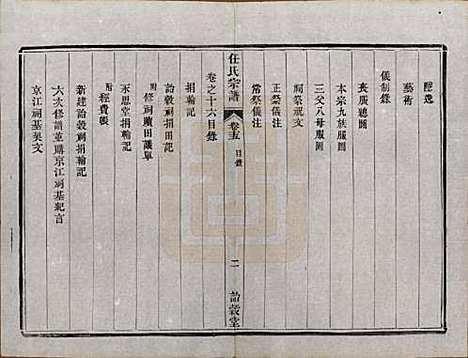 隱逸
藝術
儀制錄
喪廣總圖
本宗九族服圖
三父八母服圖
祠祭文
正祭儀注
常祭儀注
任氏宗譜 卷五 目錄 二 詒穀堂
卷之十六目錄
捐輸記
詒穀祠捐田記
附修祠贖田議單
永思堂捐輸記
附經費帳
新建詒穀祠捐輸記
六次修譜並購京江祠基紀言
京江祠基契文